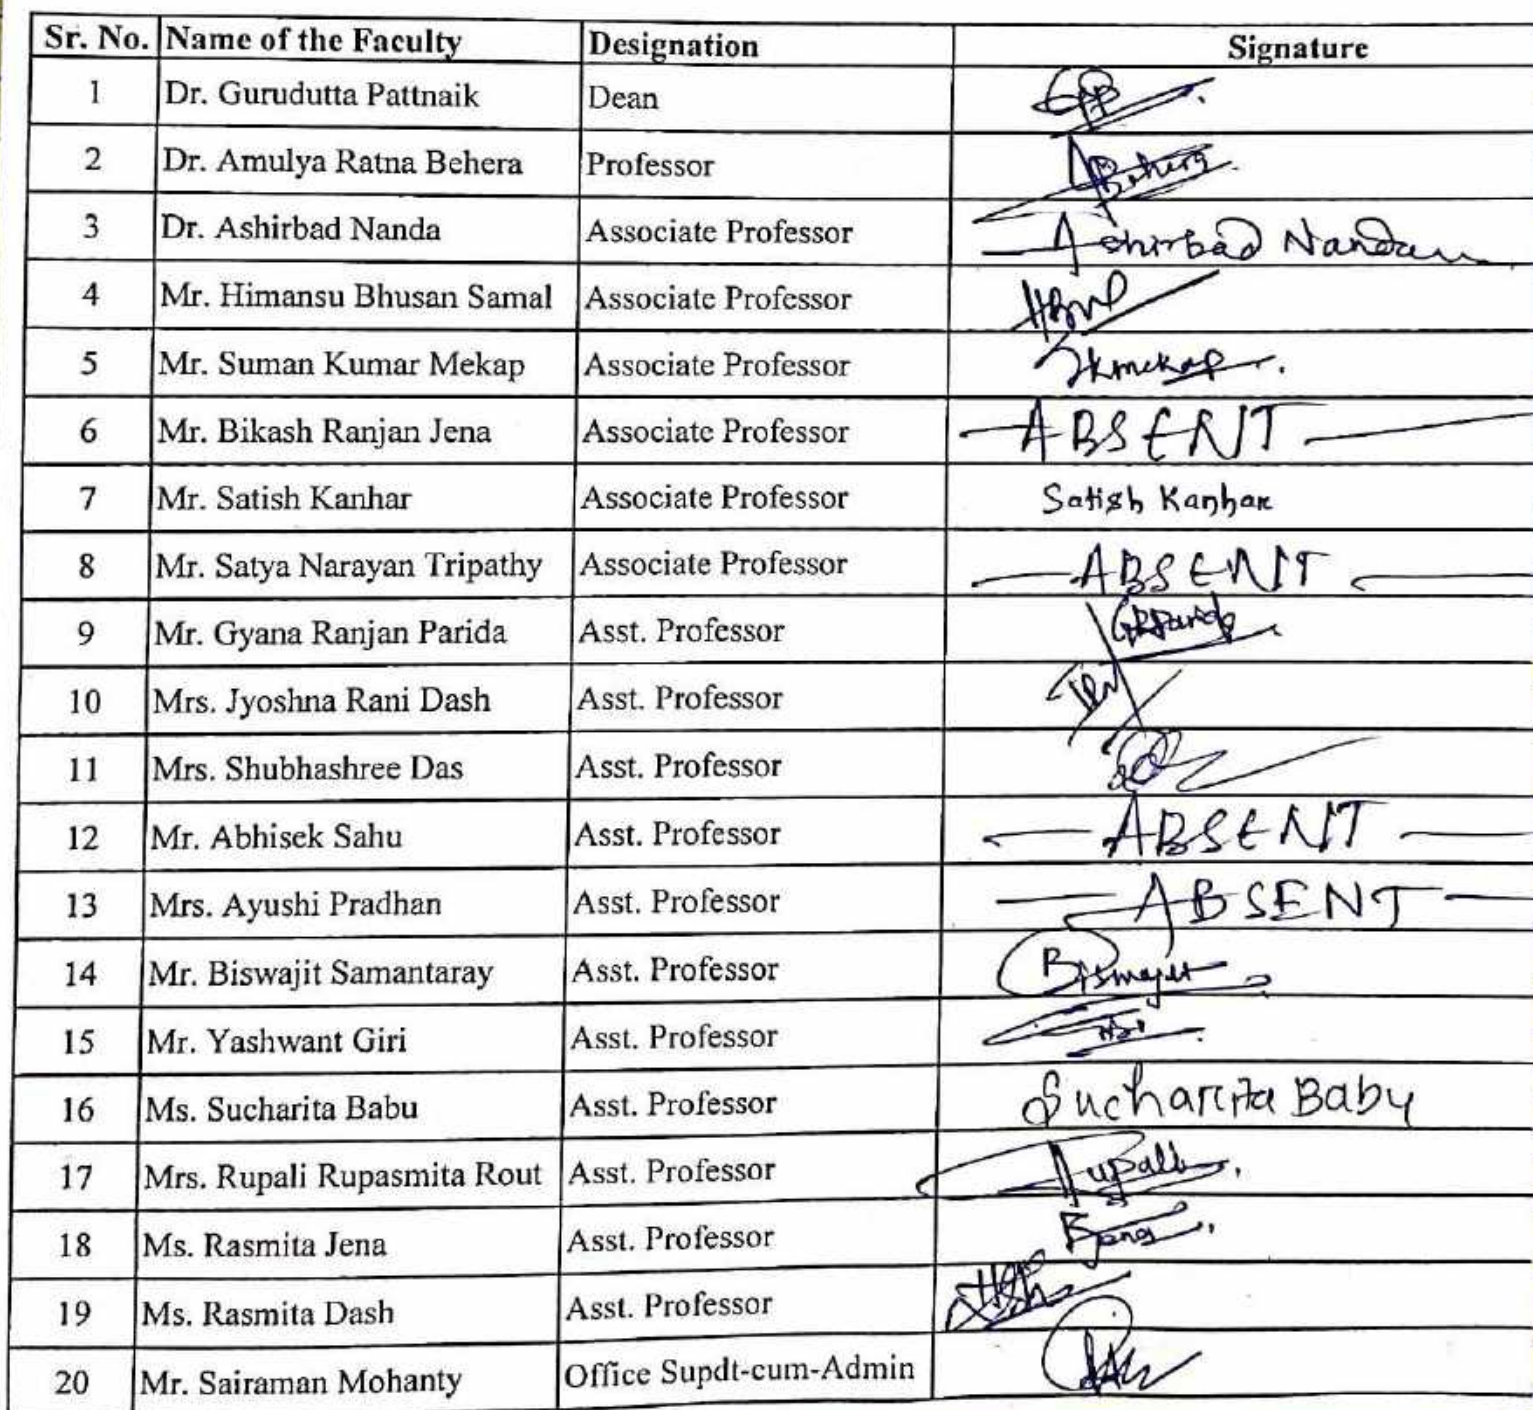 Sr. No. Name of the Faculty Designation Signature
1 Dr. Gurudutta Pattnaik Dean
2 Dr. Amulya Ratna Behera Professor ABehera
3 Dr. Ashirbad Nanda Associate Professor Ashirbad Nanda
4 Mr. Himansu Bhusan Samal Associate Professor
5 Mr. Suman Kumar Mekap Associate Professor Skmekap
6 Mr. Bikash Ranjan Jena Associate Professor ABSENT
7 Mr. Satish Kanhar Associate Professor Satish Kanhar
8 Mr. Satya Narayan Tripathy Associate Professor ABSENT
9 Mr. Gyana Ranjan Parida Asst. Professor GRParida
10 Mrs. Jyoshna Rani Dash Asst. Professor
11 Mrs. Shubhashree Das Asst. Professor
12 Mr. Abhisek Sahu Asst. Professor ABSENT
13 Mrs. Ayushi Pradhan Asst. Professor ABSENT
14 Mr. Biswajit Samantaray Asst. Professor Biswajit
15 Mr. Yashwant Giri Asst. Professor
16 Ms. Sucharita Babu Asst. Professor Sucharita Babu
17 Mrs. Rupali Rupasmita Rout Asst. Professor Rupali
18 Ms. Rasmita Jena Asst. Professor RJena
19 Ms. Rasmita Dash Asst. Professor
20 Mr. Sairaman Mohanty Office Supdt-cum-Admin